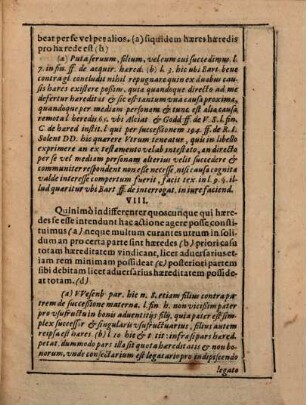 beat per se vel per alios. (a) siquidem hæres hæredis
pro hærede est (b)
(a) Puta seruum, filium, vel cum cui succedimus. l.
7. in fin. ff. de acquir. hæred. (b) l. 3. hic vbi Bart. bene
contra gl. concludit nihil repugnare quin ex duabus cau-
sis hæres existere possim, quia quandoque directo ad me
defertur hæreditas & sic est tantum vna causa proxima,
quandoque per mediam personam & tunc est alia causa
remota l. heredi. 65. vbi Alciat & Godd. ff. de V. S. l. fin.
C. de hæred. instit. l. qui per successionem 194. ff. de R. I.
Solent DD. hic quærere Vtrum teneatur, quis in libello
exprimere an ex testamento vel ab intestato, an directo
per se vel mediam personam alterius velit succedere &
communiter respondent non esse necesse, nisi causa cognita
valde interesse compertum fuerit, facit tex. in l. 9. §. il-
lud quæritur vbi Bart. ff. de interrogat. in iure faciend.
VIII.
Quinimò indifferenter quoscunque qui hære-
des se esse intendunt hac actione agere posse consti-
tuimus (a) neque multum curantes utrum in soli-
dum an pro certa parte sint hæredes (b) priori casu
totam hæreditatem vindicant, licet aduersarius et-
iam rem minimam possideat (c) posteriori partem
sibi debitam licet aduersarius hæreditatem posside-
at totam. (d)
(a) VVesenb. par. hic n. 8. etiam filius contra pa-
trem de successione materna. l. fin. h. non vicissim pater
pro vsufructu in bonis aduentitijs filij, quia pater est sim-
plex successor & singularis vsufructuarius, filius autem
reipsa est hæres. (b) l. 10. hic & 5. tit: infra si pars hæred.
petat. dummodo pars illa sit quota hæreditatis & non bo-
norum, vnde consectarium est legatario pro indipiscendo
legato